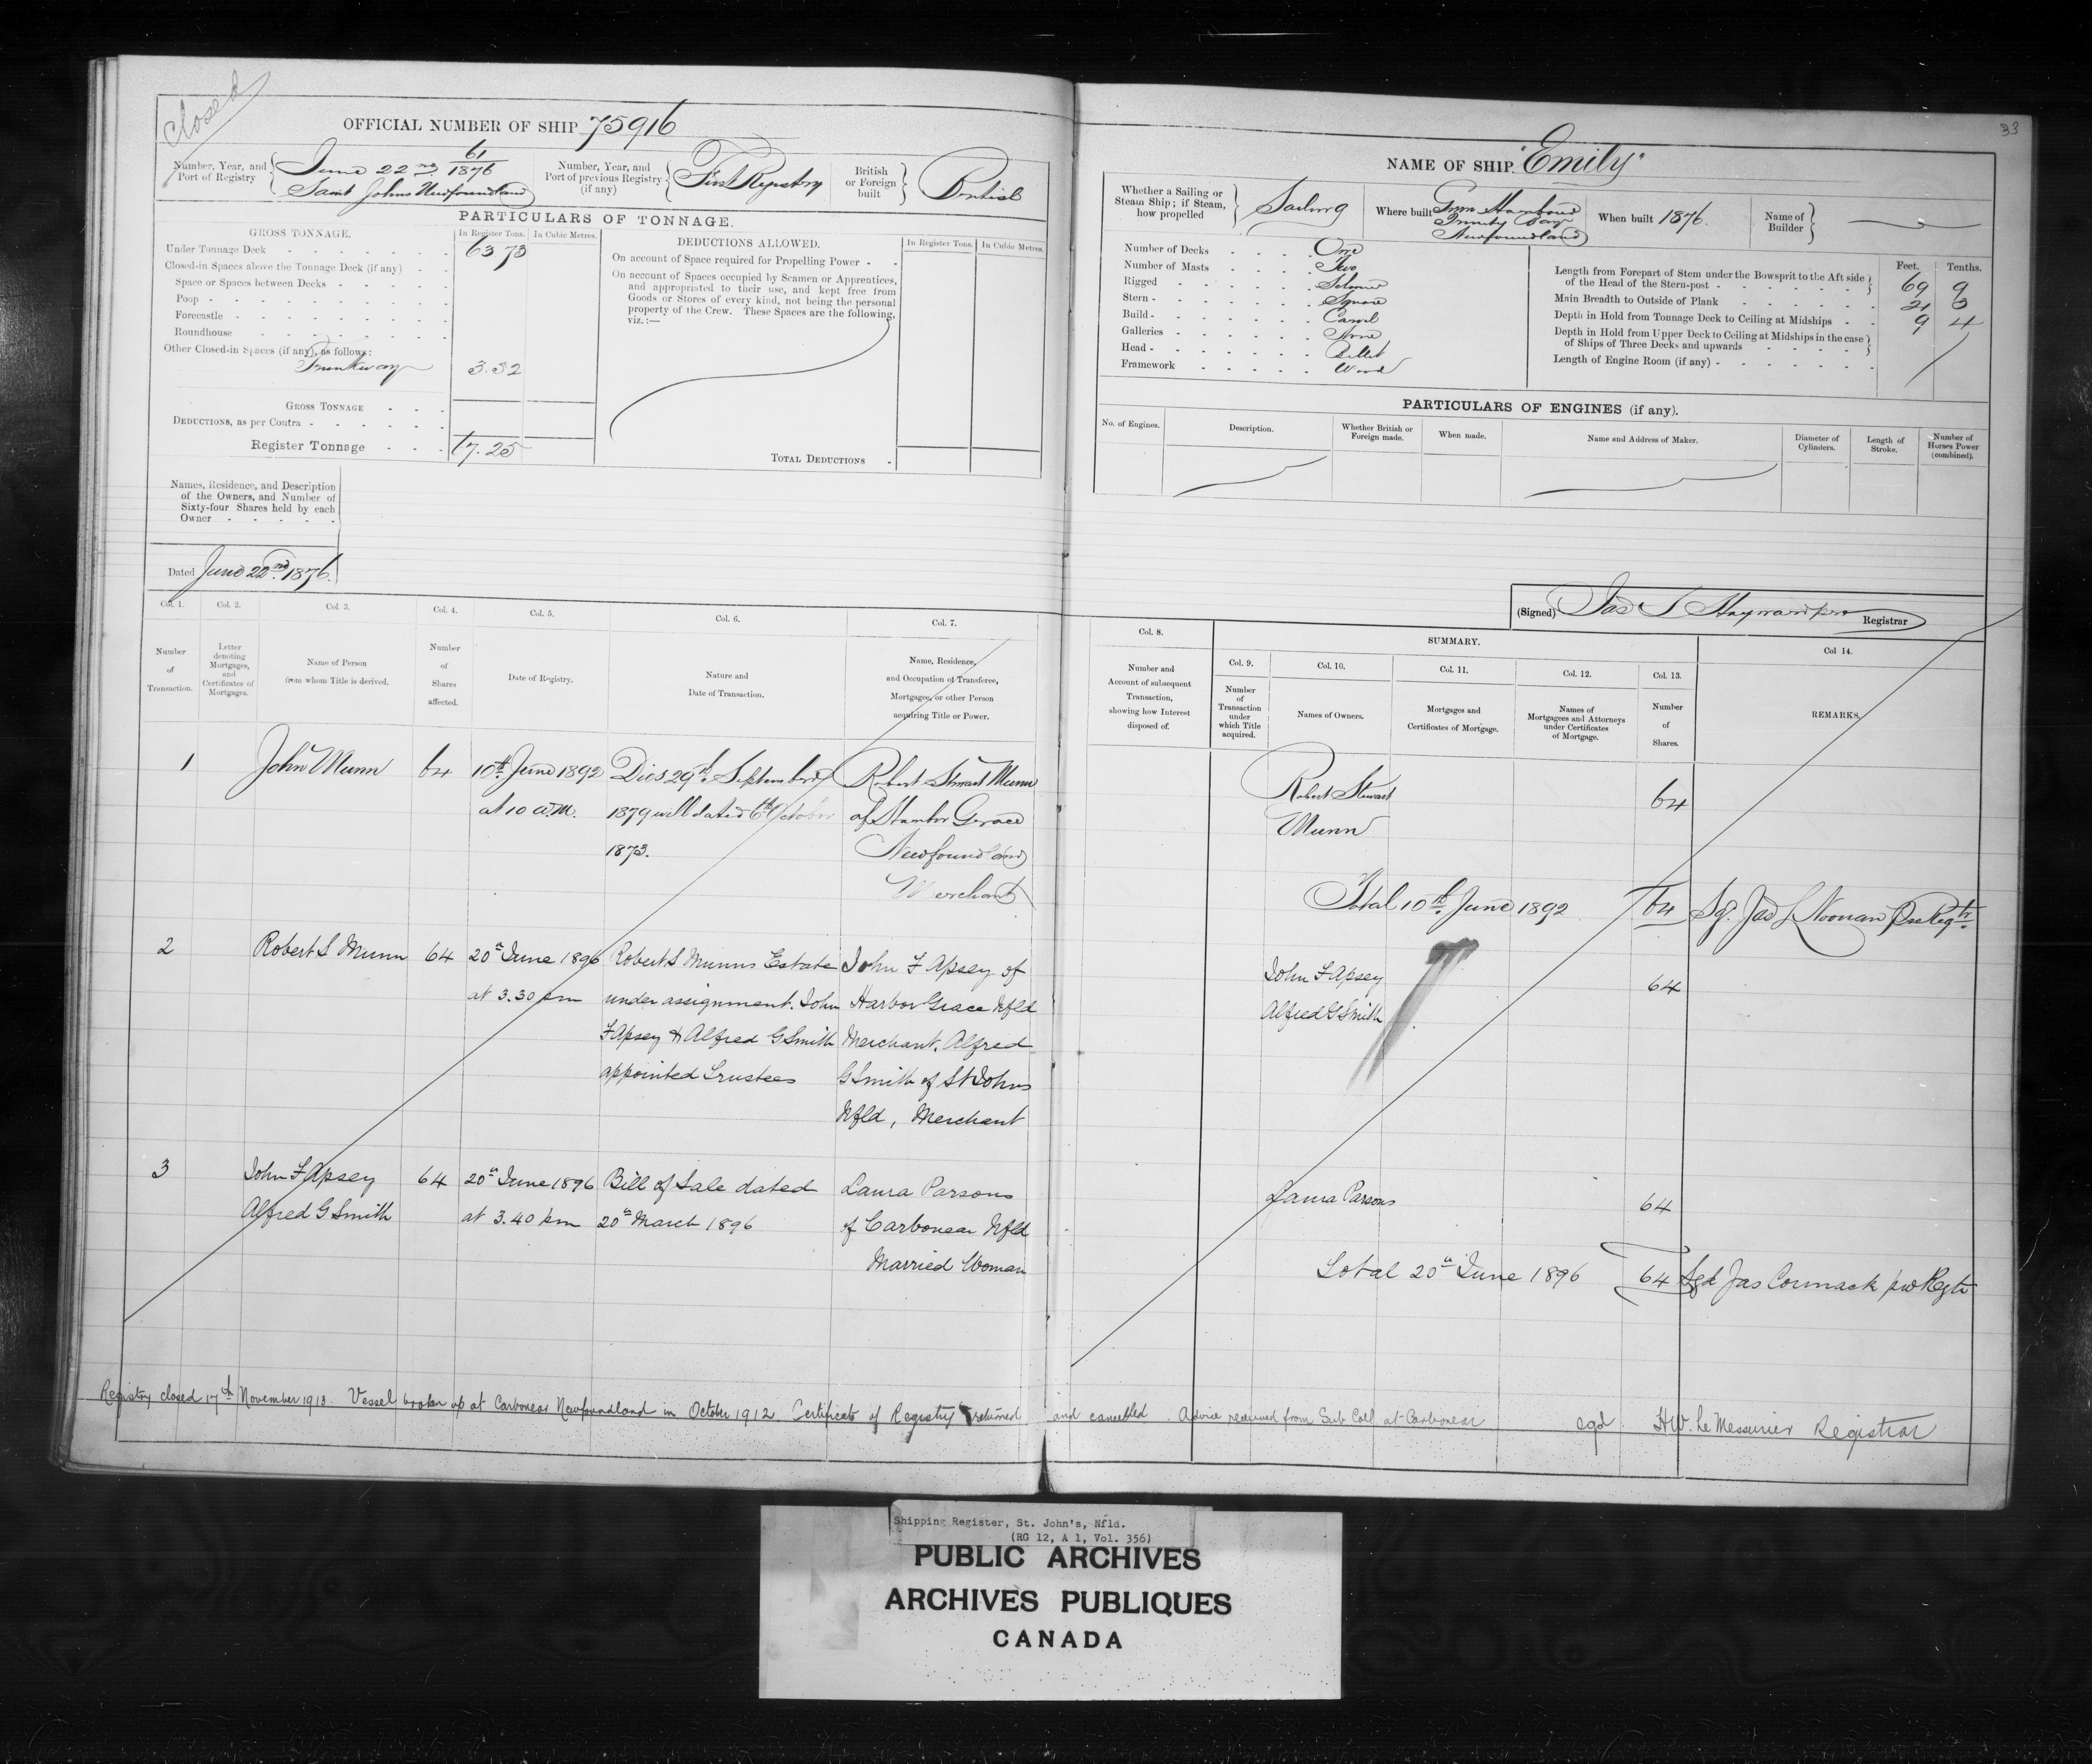 Closed
33
OFFICIAL NUMBER OF SHIP 75916
Number, Year, and
Port of Registry
June 22nd 61/1876
Saint Johns Newfoundland
Number, Year, and
Port of previous Registry
(if any)
First Registry
British
or Foreign
built
British
PARTICULARS OF TONNAGE.
GROSS TONNAGE.
In Register Tons. In Cubic Metres.
Under Tonnage Deck 63 73
Closed-in Spaces above the Tonnage Deck (if any)
Space or Spaces between Decks
Poop
Forecastle
Roundhouse
Other Closed-in Spaces (if any), as follows:
Trunkway 3.52
GROSS TONNAGE
DEDUCTIONS, as per Contra
Register Tonnage 67.25
DEDUCTIONS ALLOWED.
In Register Tons. In Cubic Metres.
On account of Space required for Propelling Power
On account of Spaces occupied by Seamen or Apprentices,
and appropriated to their use, and kept free from
Goods or Stores of every kind, not being the personal
property of the Crew. These Spaces are the following,
viz.:—
TOTAL DEDUCTIONS
Names, Residence, and Description
of the Owners, and Number of
Sixty-four Shares held by each
Owner
Dated June 22nd 1876.
NAME OF SHIP. "Emily"
Whether a Sailing or
Steam Ship; if Steam,
how propelled
Sailing
Where built
Harbour
Trinity Bay
Newfoundland
When built 1876.
Name of
Builder
Number of Decks One
Number of Masts Two
Rigged Schooner
Stern Square
Build Carvel
Galleries None
Head Billet
Framework Wood
Feet. Tenths.
Length from Forepart of Stem under the Bowsprit to the Aft side
of the Head of the Stern-post 69 9
Main Breadth to Outside of Plank 21 3
Depth in Hold from Tonnage Deck to Ceiling at Midships 9 4
Depth in Hold from Upper Deck to Ceiling at Midships in the case
of Ships of Three Decks and upwards
Length of Engine Room (if any)
PARTICULARS OF ENGINES (if any).
No. of Engines. Description. Whether British or
Foreign made. When made. Name and Address of Maker. Diameter of
Cylinders. Length of
Stroke. Number of
Horses Power
(combined).
(Signed) Jas S Hayward pro Registrar
Col. 1. Col. 2. Col. 3. Col. 4. Col. 5. Col. 6. Col. 7.
Number
of
Transaction.
Letter
denoting
Mortgages,
and
Certificates of
Mortgages.
Name of Person
from whom Title is derived.
Number
of
Shares
affected.
Date of Registry.
Nature and
Date of Transaction.
Name, Residence,
and Occupation of Transferee,
Mortgagee, or other Person
acquiring Title or Power.
Col. 8.
Number and
Account of subsequent
Transaction,
showing how Interest
disposed of.
SUMMARY.
Col. 9. Col. 10. Col. 11. Col. 12. Col. 13. Col 14.
Number
of
Transaction
under
which Title
acquired.
Names of Owners.
Mortgages and
Certificates of Mortgage.
Names of
Mortgagees and Attorneys
under Certificates
of Mortgage.
Number
of
Shares.
REMARKS.
1 John Munn 64 10th June 1892 Died 29th September Robert Stewart Munn
at 10 a.m. 1879 will dated 6th October of Harbor Grace
1873. Newfoundland
Merchant
Robert Stewart 64
Munn
Total 10th June 1892 64 Sg. Jas L Noonan pro Regtr.
2 Robert S Munn 64 20th June 1896 Robert S Munns Estate John F Apsey of
at 3.30 pm under assignment. John Harbor Grace Nfld
F Apsey & Alfred G Smith Merchant. Alfred
appointed Trustees G Smith of St Johns
Nfld, Merchant
John F Apsey 64
Alfred G Smith
3 John F Apsey 64 20th June 1896 Bill of Sale dated Laura Parsons
Alfred G Smith at 3.40 pm 20th March 1896 of Carbonear Nfld
Married Woman
Laura Parsons 64
Total 20th June 1896 64 Sgd Jas Cormack pro Regtr
Registry closed 17th November 1913. Vessel broken up at Carbonear Newfoundland in October 1912. Certificate of Registry returned and cancelled. Advice received from Sub Coll at Carbonear sgd. HW. Le Messurier Registrar
Shipping Register, St. John's, Nfld.
(RG 12, A 1, Vol. 356)
PUBLIC ARCHIVES
ARCHIVES PUBLIQUES
CANADA